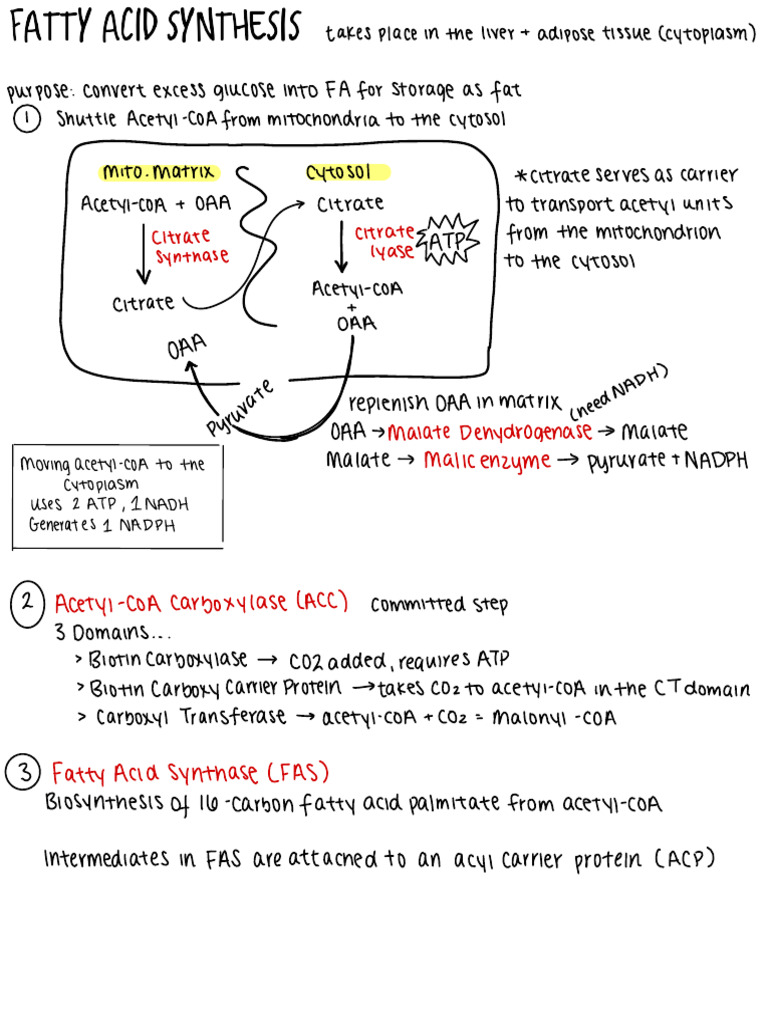 FATTY ACID SYNTHESIS takes place in the liver + adipose tissue (cytoplasm)
purpose: convert excess glucose into FA for storage as fat
1 Shuttle Acetyl-CoA from mitochondria to the cytosol
mito. matrix
Acetyl-CoA + OAA
Citrate
synthase
Citrate
OAA
cytosol
Citrate
citrate
lyase
ATP
Acetyl-CoA
+
OAA
*citrate serves as carrier
to transport acetyl units
from the mitochondrion
to the cytosol
Pyruvate
replenish OAA in matrix (need NADH)
OAA → Malate Dehydrogenase → malate
malate → Malic enzyme → pyruvate + NADPH
Moving acetyl-coA to the
cytoplasm
uses 2 ATP, 1 NADH
Generates 1 NADPH
2 Acetyl-CoA carboxylase (ACC) committed step
3 Domains...
> Biotin carboxylase → CO2 added, requires ATP
> Biotin Carboxy Carrier Protein → takes CO2 to acetyl-coA in the CT domain
> Carboxyl Transferase → acetyl-coA + CO2 = malonyl-COA
3 Fatty Acid Synthase (FAS)
Biosynthesis of 16-carbon fatty acid palmitate from acetyl-COA
Intermediates in FAS are attached to an acyl carrier protein (ACP)